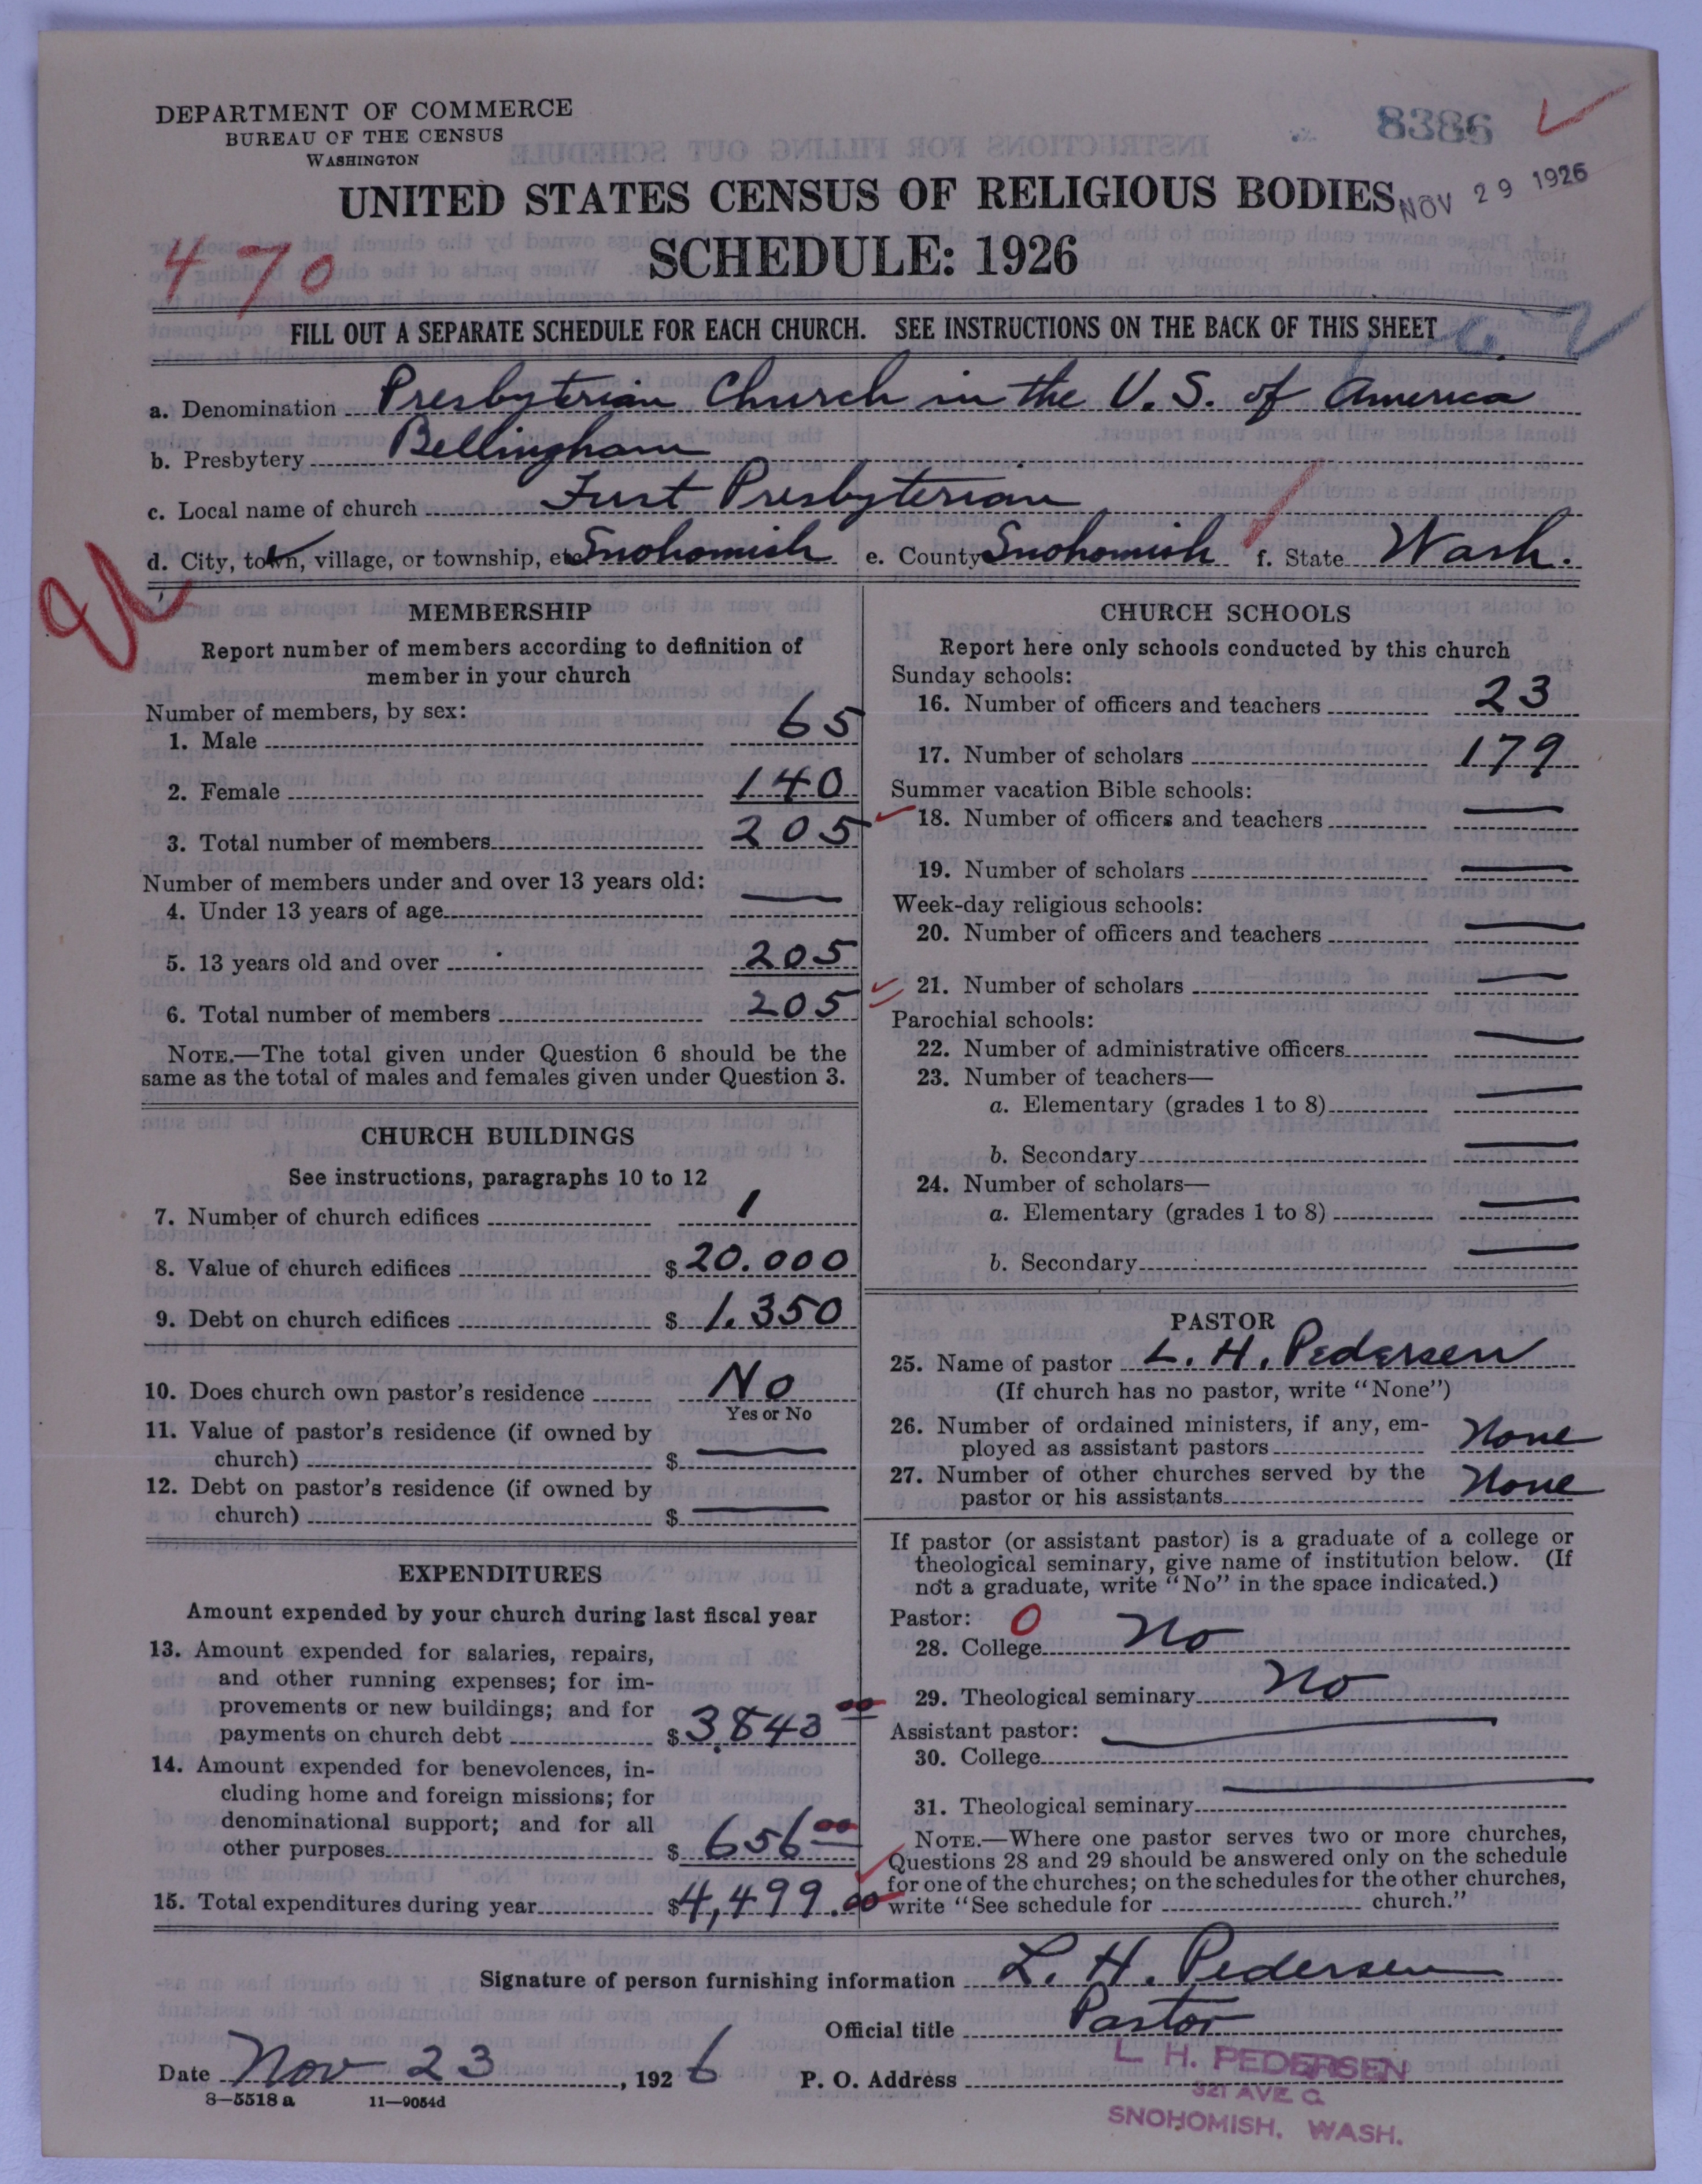 DEPARTMENT OF COMMERCE
BUREAU OF THE CENSUS
WASHINGTON
8386
UNITED STATES CENSUS OF RELIGIOUS BODIES
NOV 29 1926
470
SCHEDULE: 1926
FILL OUT A SEPARATE SCHEDULE FOR EACH CHURCH. SEE INSTRUCTIONS ON THE BACK OF THIS SHEET
a. Denomination Presbyterian Church in the U. S. of America
b. Presbytery Bellingham
c. Local name of church First Presbyterian
d. City, town, village, or township, etc. Snohomish e. County Snohomish f. State Wash.
MEMBERSHIP
Report number of members according to definition of
member in your church
Number of members, by sex:
1. Male 65
2. Female 140
3. Total number of members 205
Number of members under and over 13 years old:
4. Under 13 years of age —
5. 13 years old and over 205
6. Total number of members 205
NOTE.—The total given under Question 6 should be the
same as the total of males and females given under Question 3.
CHURCH BUILDINGS
See instructions, paragraphs 10 to 12
7. Number of church edifices 1
8. Value of church edifices $ 20.000
9. Debt on church edifices $ 1.350
10. Does church own pastor's residence No
Yes or No
11. Value of pastor's residence (if owned by
church) $ —
12. Debt on pastor's residence (if owned by
church) $ —
EXPENDITURES
Amount expended by your church during last fiscal year
13. Amount expended for salaries, repairs,
and other running expenses; for im-
provements or new buildings; and for
payments on church debt $ 3,843 00
14. Amount expended for benevolences, in-
cluding home and foreign missions; for
denominational support; and for all
other purposes $ 656 00
15. Total expenditures during year $ 4,499.00
CHURCH SCHOOLS
Report here only schools conducted by this church
Sunday schools:
16. Number of officers and teachers 23
17. Number of scholars 179
Summer vacation Bible schools:
18. Number of officers and teachers —
19. Number of scholars —
Week-day religious schools:
20. Number of officers and teachers —
21. Number of scholars —
Parochial schools:
22. Number of administrative officers —
23. Number of teachers—
a. Elementary (grades 1 to 8) —
b. Secondary —
24. Number of scholars—
a. Elementary (grades 1 to 8) —
b. Secondary —
PASTOR
25. Name of pastor L. H. Pedersen
(If church has no pastor, write "None")
26. Number of ordained ministers, if any, em-
ployed as assistant pastors None
27. Number of other churches served by the
pastor or his assistants None
If pastor (or assistant pastor) is a graduate of a college or
theological seminary, give name of institution below. (If
not a graduate, write "No" in the space indicated.)
Pastor: 0
28. College No
29. Theological seminary No
Assistant pastor: —
30. College
31. Theological seminary —
NOTE.—Where one pastor serves two or more churches,
Questions 28 and 29 should be answered only on the schedule
for one of the churches; on the schedules for the other churches,
write "See schedule for church."
Signature of person furnishing information L. H. Pedersen
Official title Pastor
Date Nov 23, 1926 P. O. Address L. H. PEDERSEN
321 AVE C
SNOHOMISH, WASH.
8—5518 a 11—9054d